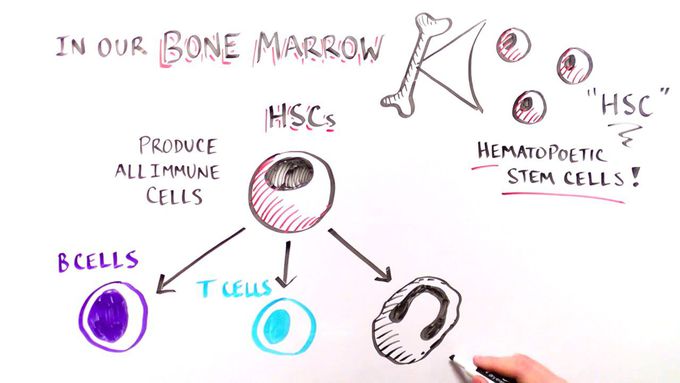 IN OUR BONE MARROW
"HSC"
HEMATOPOETIC
STEM CELLS!
HSCs
PRODUCE
ALL IMMUNE
CELLS
B CELLS
T CELLS